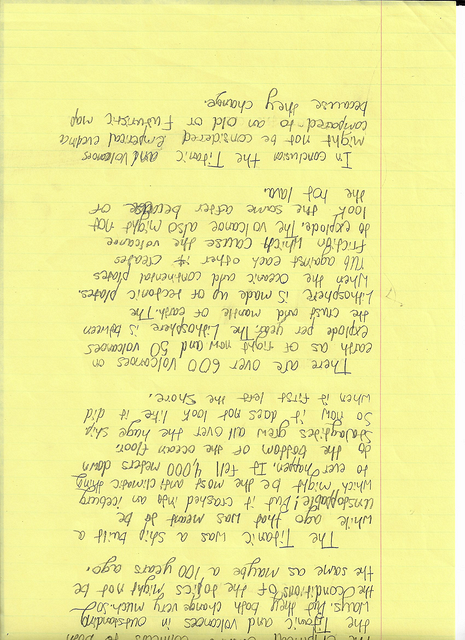 the Titanic and volcanoes in outstanding
ways. But they both change very much. So
the Conditions of the topics might not be
the same as maybe a 100 years ago.
The Titanic was a ship built a
while ago that was meant to be
unstoppable! But it crashed into an iceburg
which might be the most anti climatic thing
to ever happen. It fell 4,000 meters down
to the bottom of the ocean floor.
grew all over the huge ship
So now it does not look like it did
when it first left the shore.
There are over 600 volcanoes on
earth as of right now and 50 volcanoes
explode per year. The Lithosphere is between
the crust and mantle of earth. The
Lithosphere is made up of tectonic plates.
When the oceanic and continental plates
rub against each other it creates
friction which cause the volcanoe
to explode. The volcanoe also might not
look the same after because of
the hot lava.
In conclusion the Titanic and Volcanoes
might not be considered Empirical
compared to an old or Futuristic map
because they change.